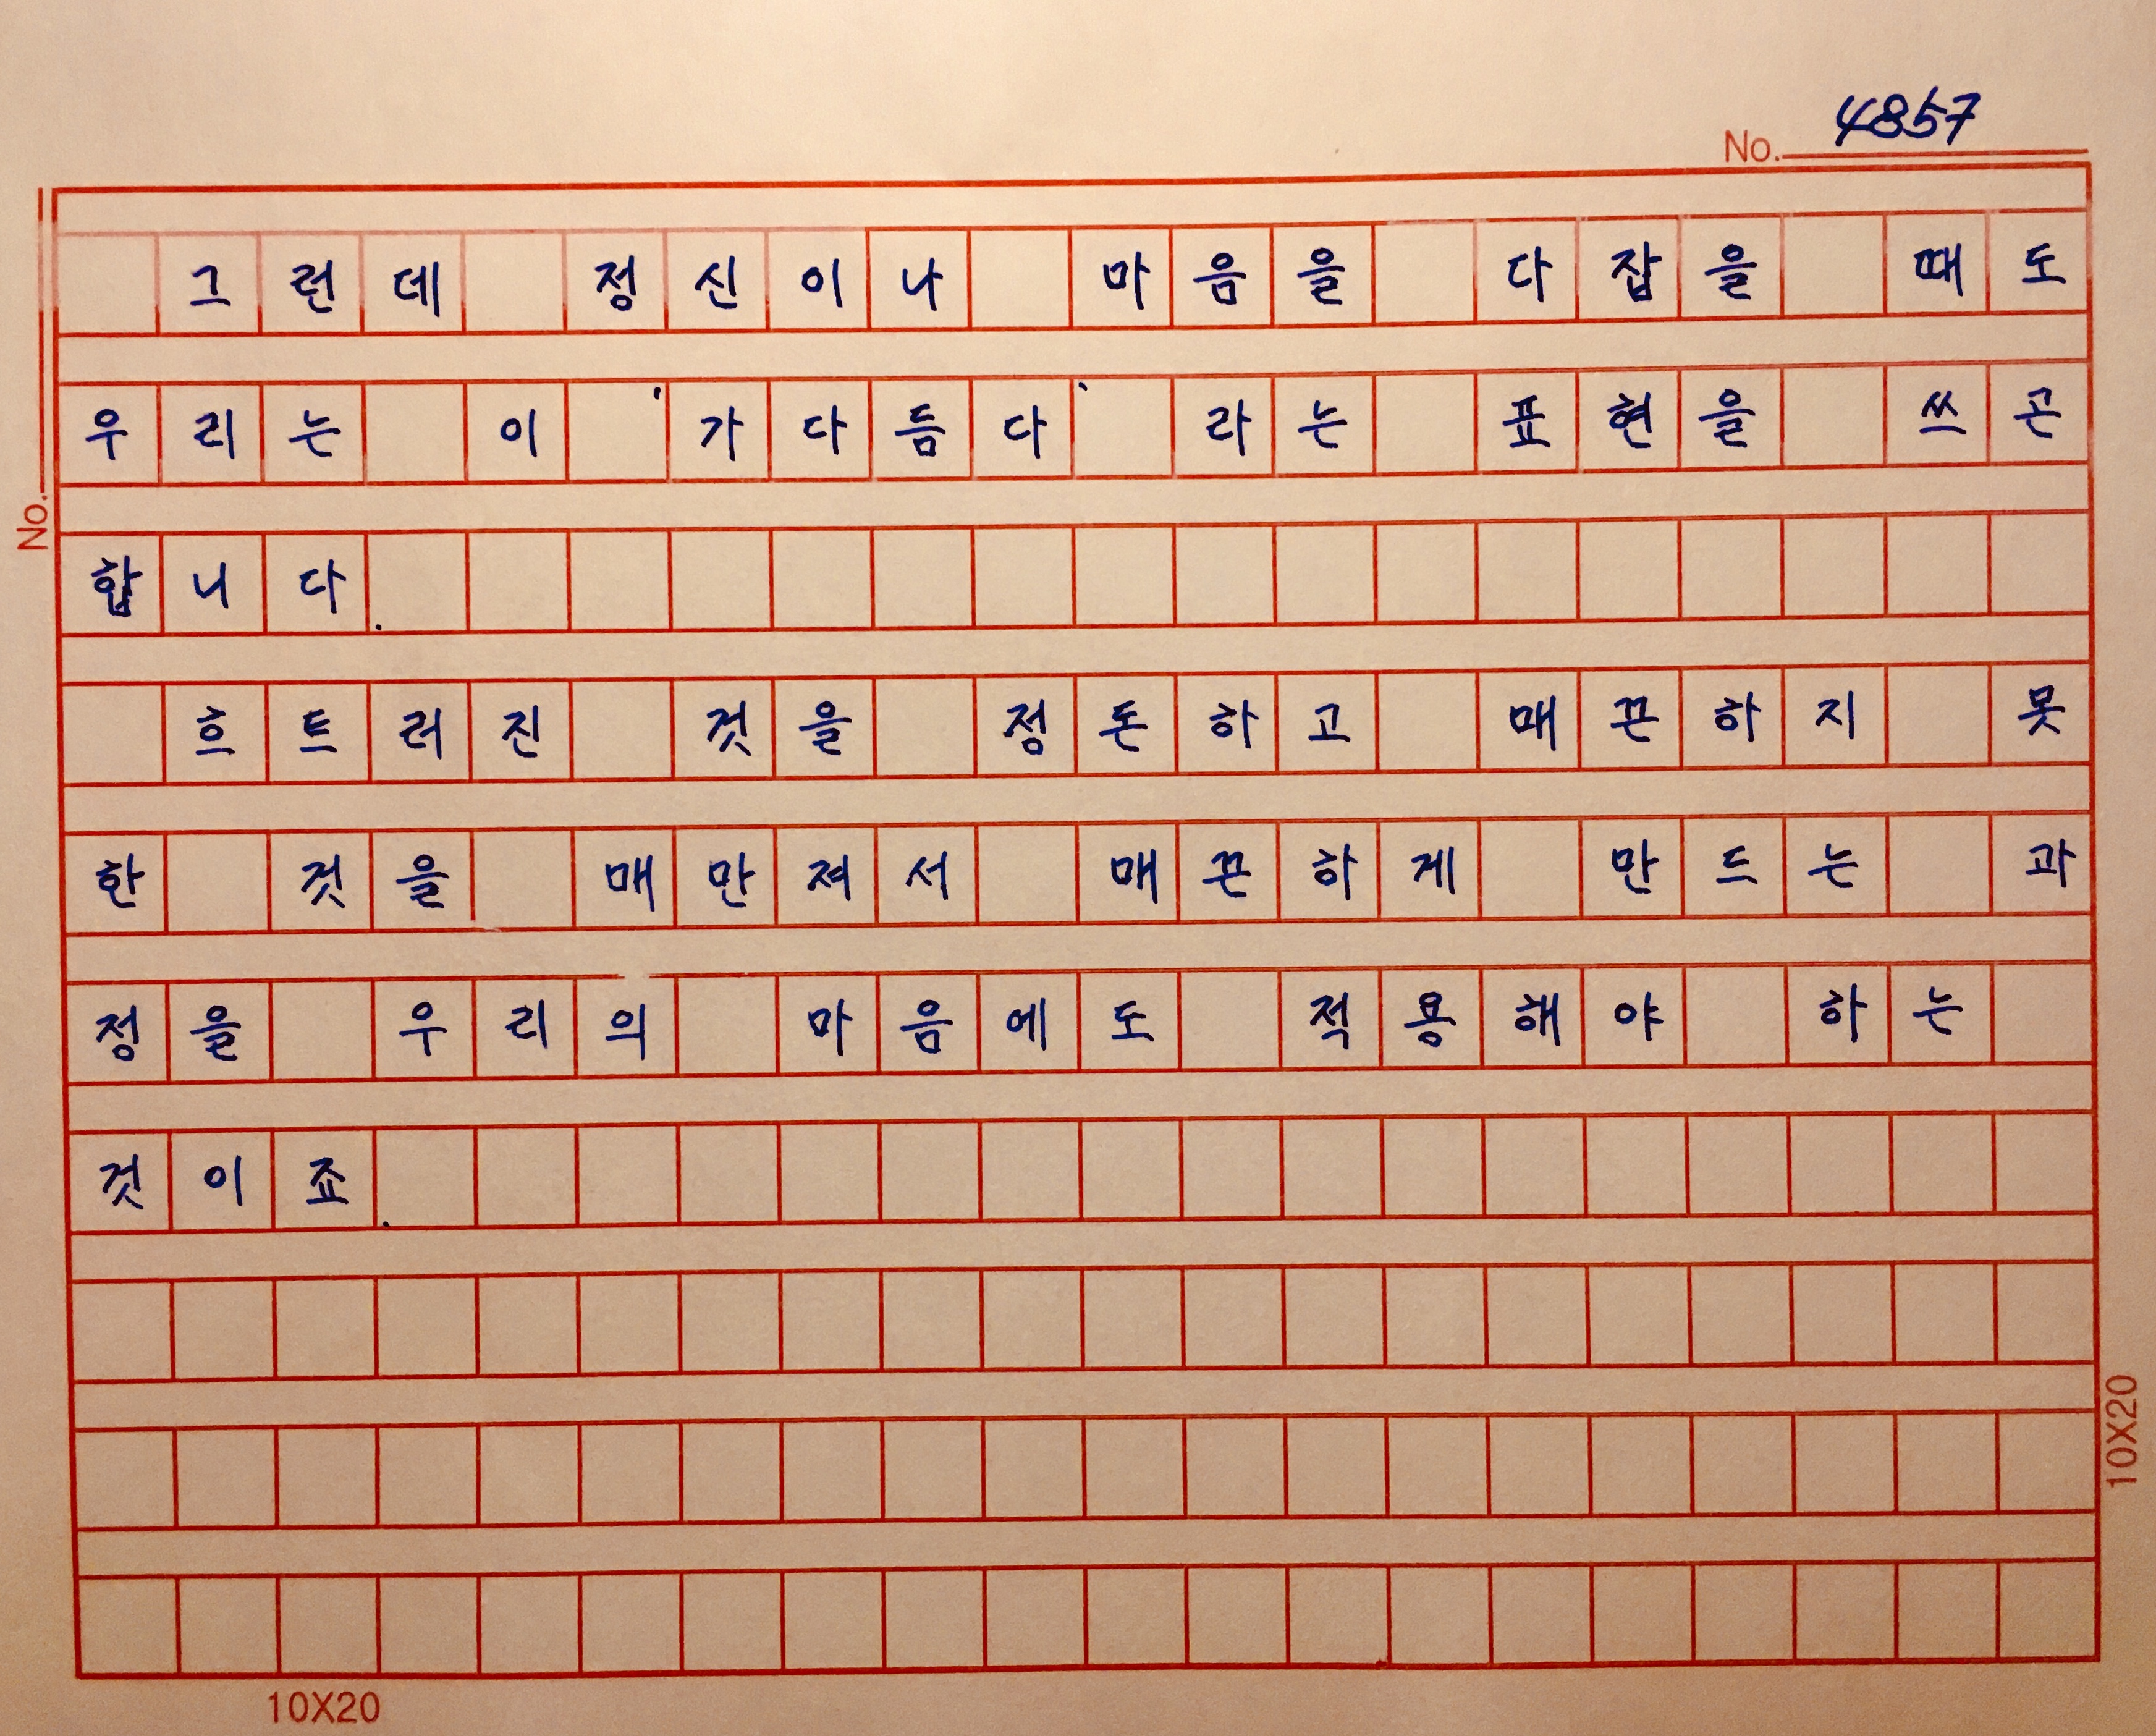 No. 4857
그런데 정신이나 마음을 다잡을 때도
우리는 이 '가다듬다' 라는 표현을 쓰곤
합니다.
흐트러진 것을 정돈하고 매끈하지 못
한 것을 매만져서 매끈하게 만드는 과
정을 우리의 마음에도 적용해야 하는
것이죠.
No.
10X20
10X20